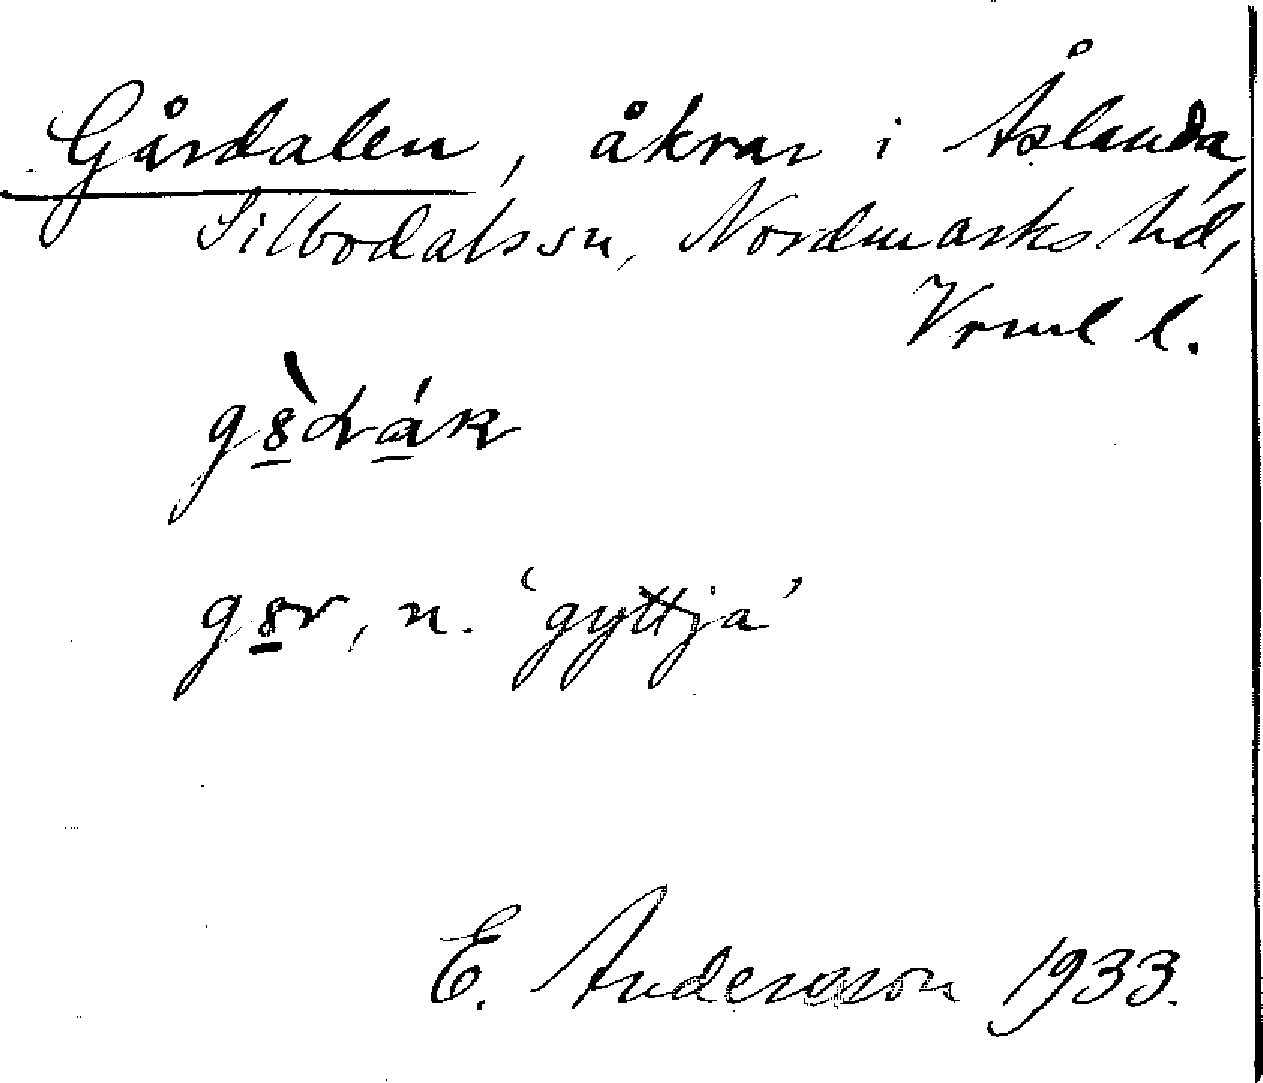 Gårdalen, åkrar i Åslanda,
Silbodals sn, Nordmarks hd,
Vrml l.
g8̲̀dá̲n
g8̲r, n. 'gyttja'
E. Andersson 1933.